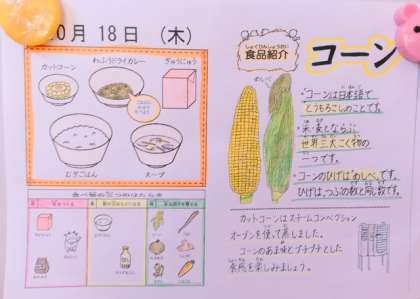 0月 18日 (木)
カットコーン
わふうドライカレー
ぎゅうにゅう
むぎごはん
スープ
しょくひんしょうかい
食品紹介
コーン
めしべ
・コーンは日本語で
とうもろこしのことです。
・米・麦とならぶ
世界三大こく物の
一つです。
・コーンのひげは"めしべ"です。
ひげは、つぶの数と同じ数です。
カットコーンはスチームコンベクション
オーブンを使って蒸しました。
コーンのあま味とプチプチとした
食感を楽しみましょう。